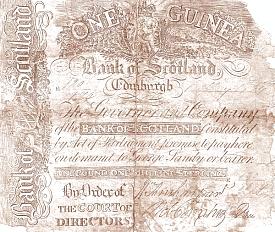 ONE GUINEA
Bank of Scotland
Bank of Scotland,
Edinburgh
The Governor and Company
of the BANK OF SCOTLAND Constituted
by Act of Parliament promise to pay here
on demand to George Sandy or bearer
ONE POUND ONE SHILLING STERLING
By Order of
THE COURT OF
DIRECTORS.